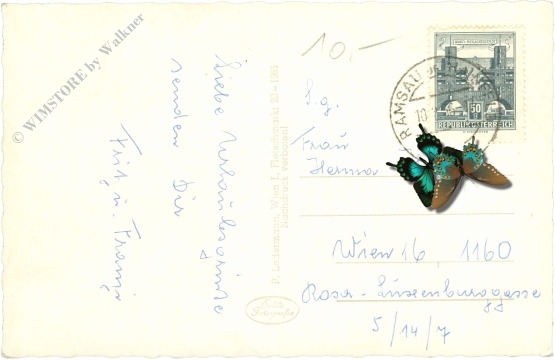 © WIMSTORE by Walkner
Liebe Urlaubsgrüsse
senden Dir
Fritz u. Franzi
P. Ledermann, Wien I, Fleischmarkt 20 - 1965
Nachdruck verboten!
Echte
Fotografie
10,-
RAMSAU
50
REPUBLIK ÖSTERREICH
S.g.
Frau
Herma
Wien 16 1160
Rosa-Luxemburggasse
5/14/7